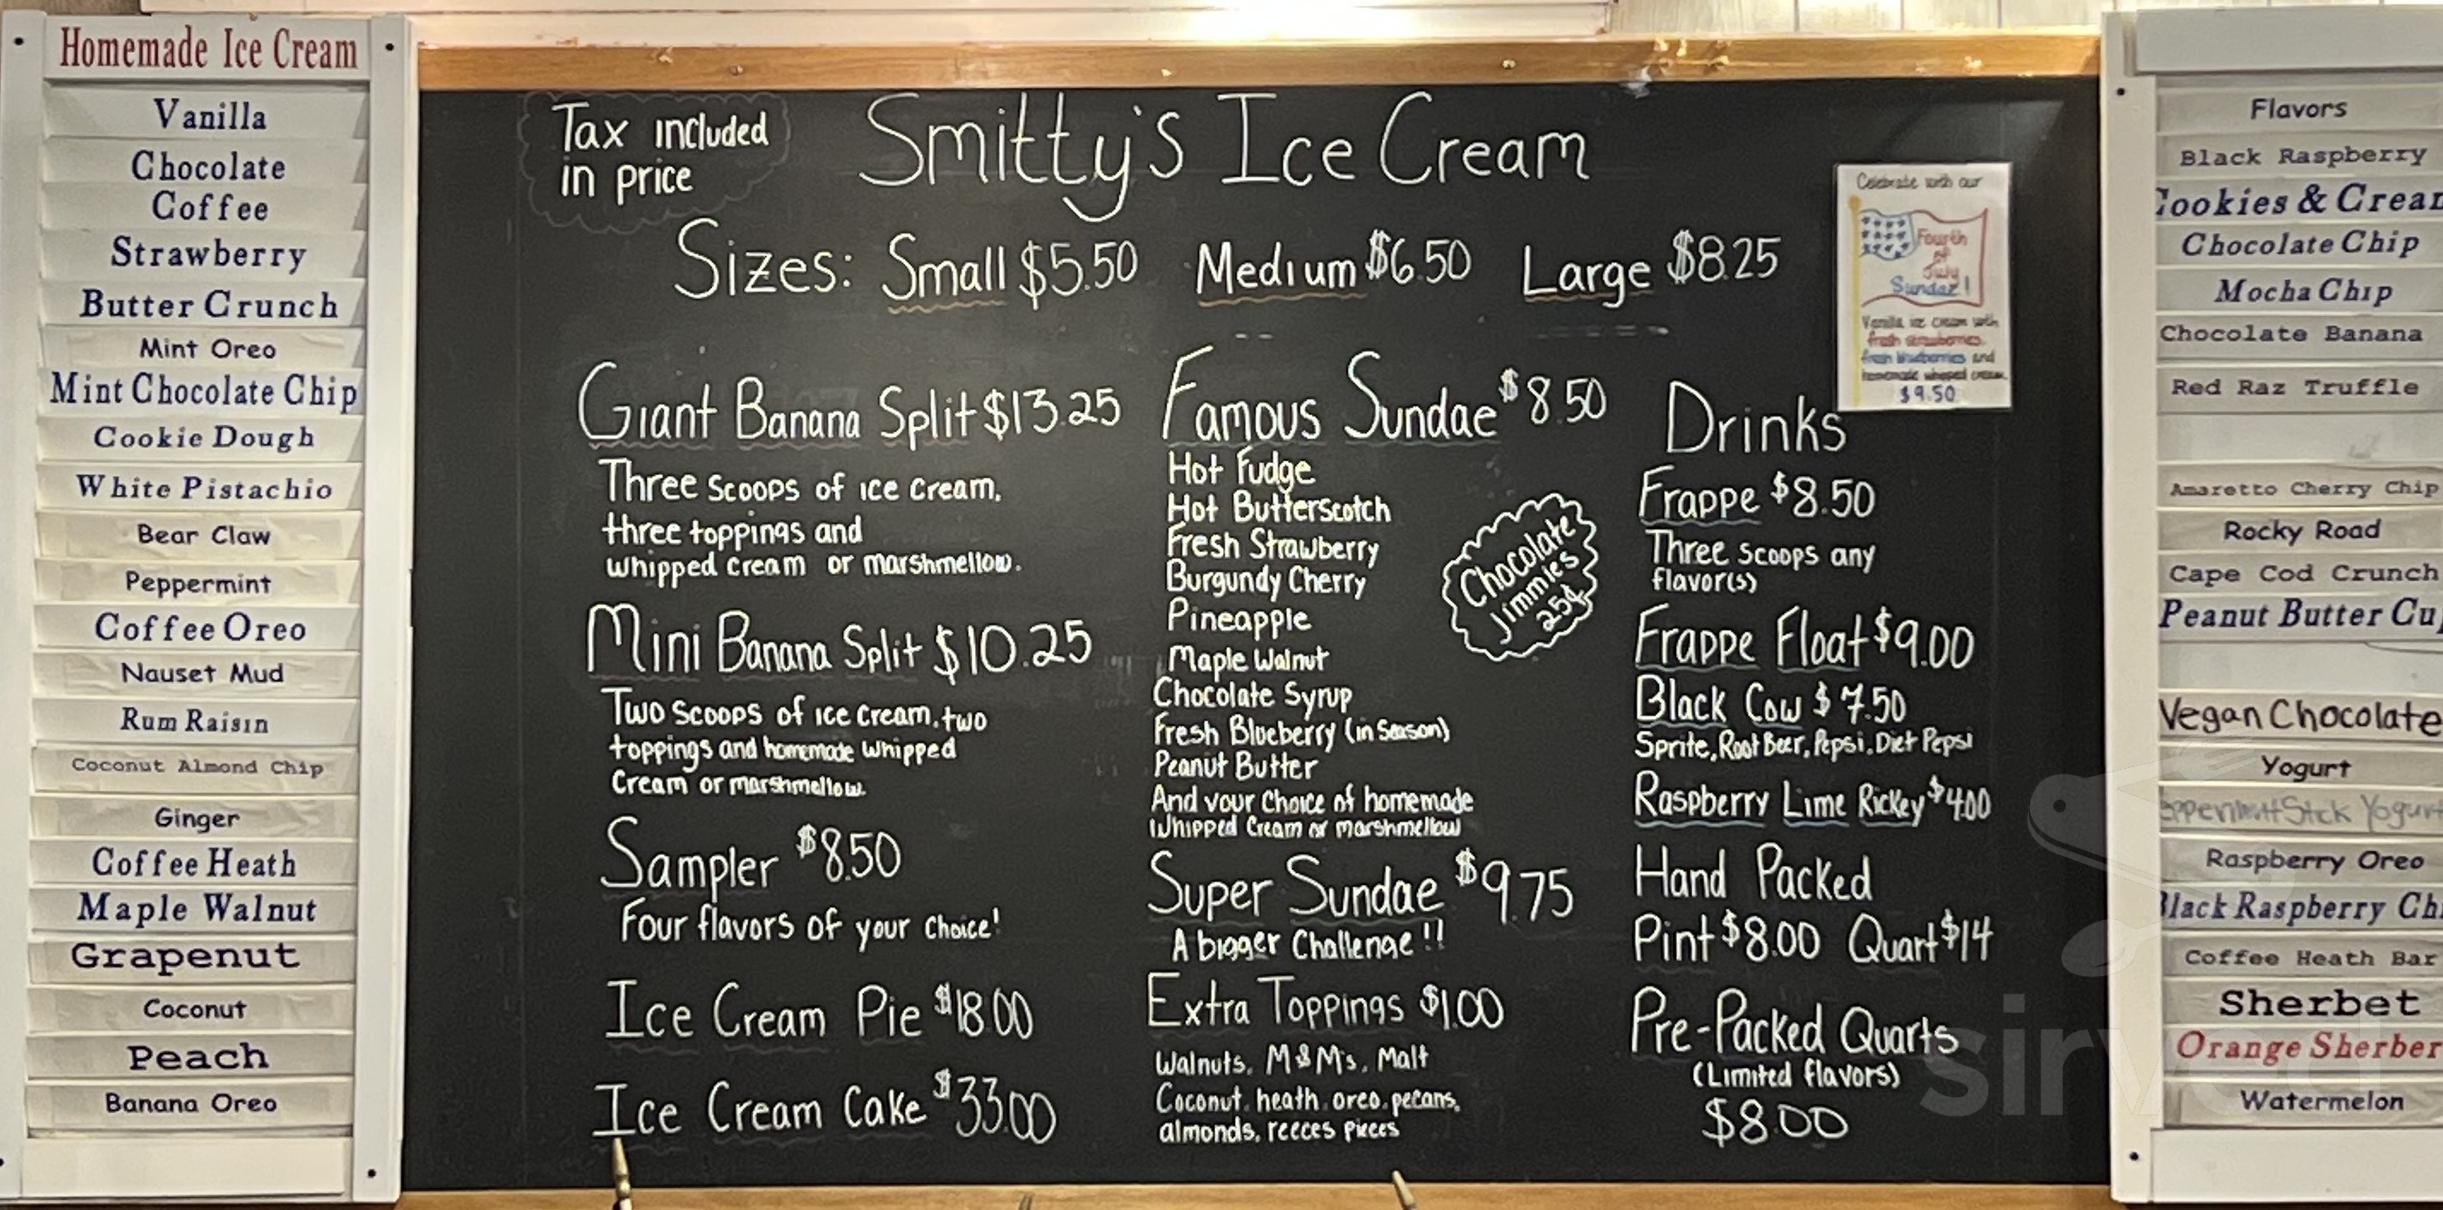 Homemade Ice Cream
Vanilla
Chocolate
Coffee
Strawberry
Butter Crunch
Mint Oreo
Mint Chocolate Chip
Cookie Dough
White Pistachio
Bear Claw
Peppermint
Coffee Oreo
Nauset Mud
Rum Raisin
Coconut Almond Chip
Ginger
Coffee Heath
Maple Walnut
Grapenut
Coconut
Peach
Banana Oreo
Tax included
in price
Smitty's Ice Cream
Sizes: Small $5.50 Medium $6.50 Large $8.25
Giant Banana Split $13.25
Three scoops of ice cream,
three toppings and
whipped cream or marshmellow.
Mini Banana Split $10.25
Two scoops of ice cream, two
toppings and homemade whipped
cream or marshmellow.
Sampler $8.50
Four flavors of your choice!
Ice Cream Pie $18.00
Ice Cream Cake $33.00
Famous Sundae $8.50
Hot Fudge
Hot Butterscotch
Fresh Strawberry
Burgundy Cherry
Pineapple
Maple Walnut
Chocolate Syrup
Fresh Blueberry (in season)
Peanut Butter
And your choice of homemade
whipped cream or marshmellow
Chocolate
Jimmies
25¢
Super Sundae $9.75
A bigger Challenge!!
Extra Toppings $1.00
Walnuts, M&M's, Malt
Coconut, heath, oreo, pecans,
almonds, reeces pieces
Celebrate with our
Fourth
of
July
Sundae!
Vanilla ice cream with
fresh strawberries,
fresh blueberries and
homemade whipped cream.
$9.50
Drinks
Frappe $8.50
Three scoops any
flavor(s)
Frappe Float $9.00
Black Cow $7.50
Sprite, Root Beer, Pepsi, Diet Pepsi
Raspberry Lime Rickey $4.00
Hand Packed
Pint $8.00 Quart $14
Pre-Packed Quarts
(Limited flavors)
$8.00
Flavors
Black Raspberry
Cookies & Cream
Chocolate Chip
Mocha Chip
Chocolate Banana
Red Raz Truffle
Amaretto Cherry Chip
Rocky Road
Cape Cod Crunch
Peanut Butter Cu
Vegan Chocolate
Yogurt
eppermint Stick Yogurt
Raspberry Oreo
Black Raspberry Ch
Coffee Heath Bar
Sherbet
Orange Sherber
Watermelon
sirved